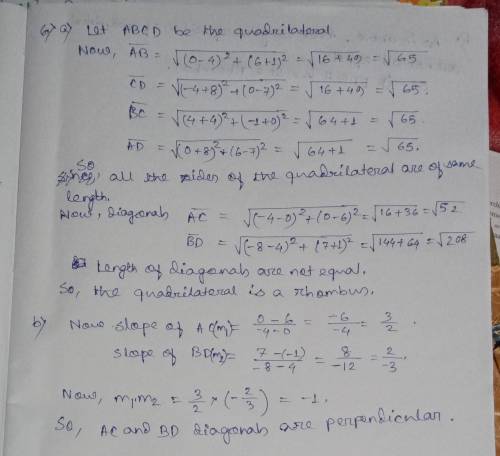 6) a) Let ABCD be the quadrilateral.
Now, AB = √(0-4)² + (6+1)² = √16+49 = √65
CD = √(-4+8)² + (0-7)² = √16+49 = √65.
BC = √(4+4)² + (-1+0)² = √64+1 = √65
AD = √(0+8)² + (6-7)² = √64+1 = √65.
So
all the sides of the quadrilateral are of same
length.
Now, diagonals AC = √(-4-0)² + (0-6)² = √16+36 = √52
BD = √(-8-4)² + (7+1)² = √144+64 = √208
Length of diagonals are not equal.
So, the quadrilateral is a rhombus.
b) Now slope of AC(m₁) = 0-6/-4-0 = -6/-4 = 3/2
slope of BD(m₂) = 7-(-1)/-8-4 = 8/-12 = 2/-3
Now, m₁m₂ = 3/2 × (-2/3) = -1.
So, AC and BD diagonals are perpendicular.